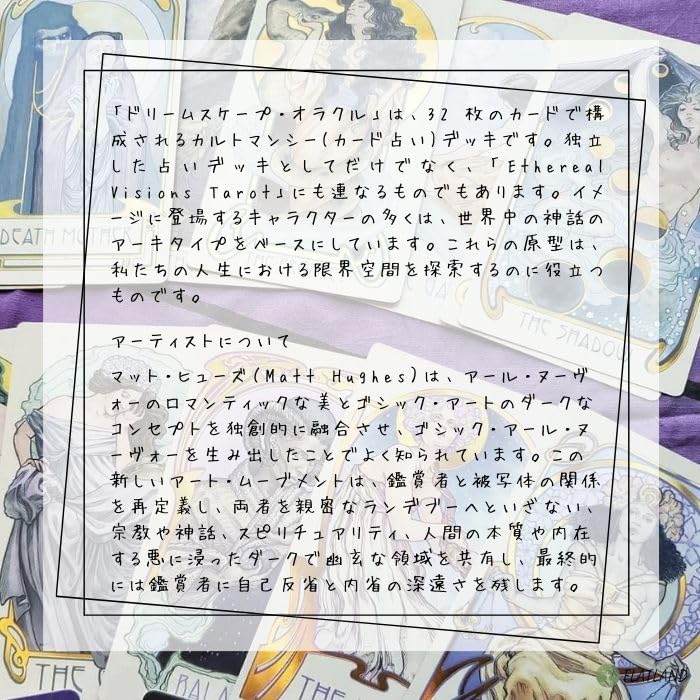 「ドリームスケープ・オラクル」は、32 枚のカードで構
成されるカルトマンシー(カード占い)デッキです。独立
した占いデッキとしてだけでなく、「Ethereal
Visions Tarot」にも連なるものでもあります。イメ
ージに登場するキャラクターの多くは、世界中の神話の
アーキタイプをベースにしています。これらの原型は、
私たちの人生における限界空間を探索するのに役立つ
ものです。
アーティストについて
マット・ヒューズ(Matt Hughes)は、アール・ヌーヴ
ォーのロマンティックな美とゴシック・アートのダークな
コンセプトを独創的に融合させ、ゴシック・アール・ヌ
ーヴォーを生み出したことでよく知られています。この
新しいアート・ムーブメントは、鑑賞者と被写体の関係
を再定義し、両者を親密なランデブーへといざない、
宗教や神話、スピリチュアリティ、人間の本質や内在
する悪に浸ったダークで幽玄な領域を共有し、最終的
には鑑賞者に自己反省と内省の深遠さを残します。
DEATH MOTHER
THE SHADOW
THE
BALA
THE
FLATLAND